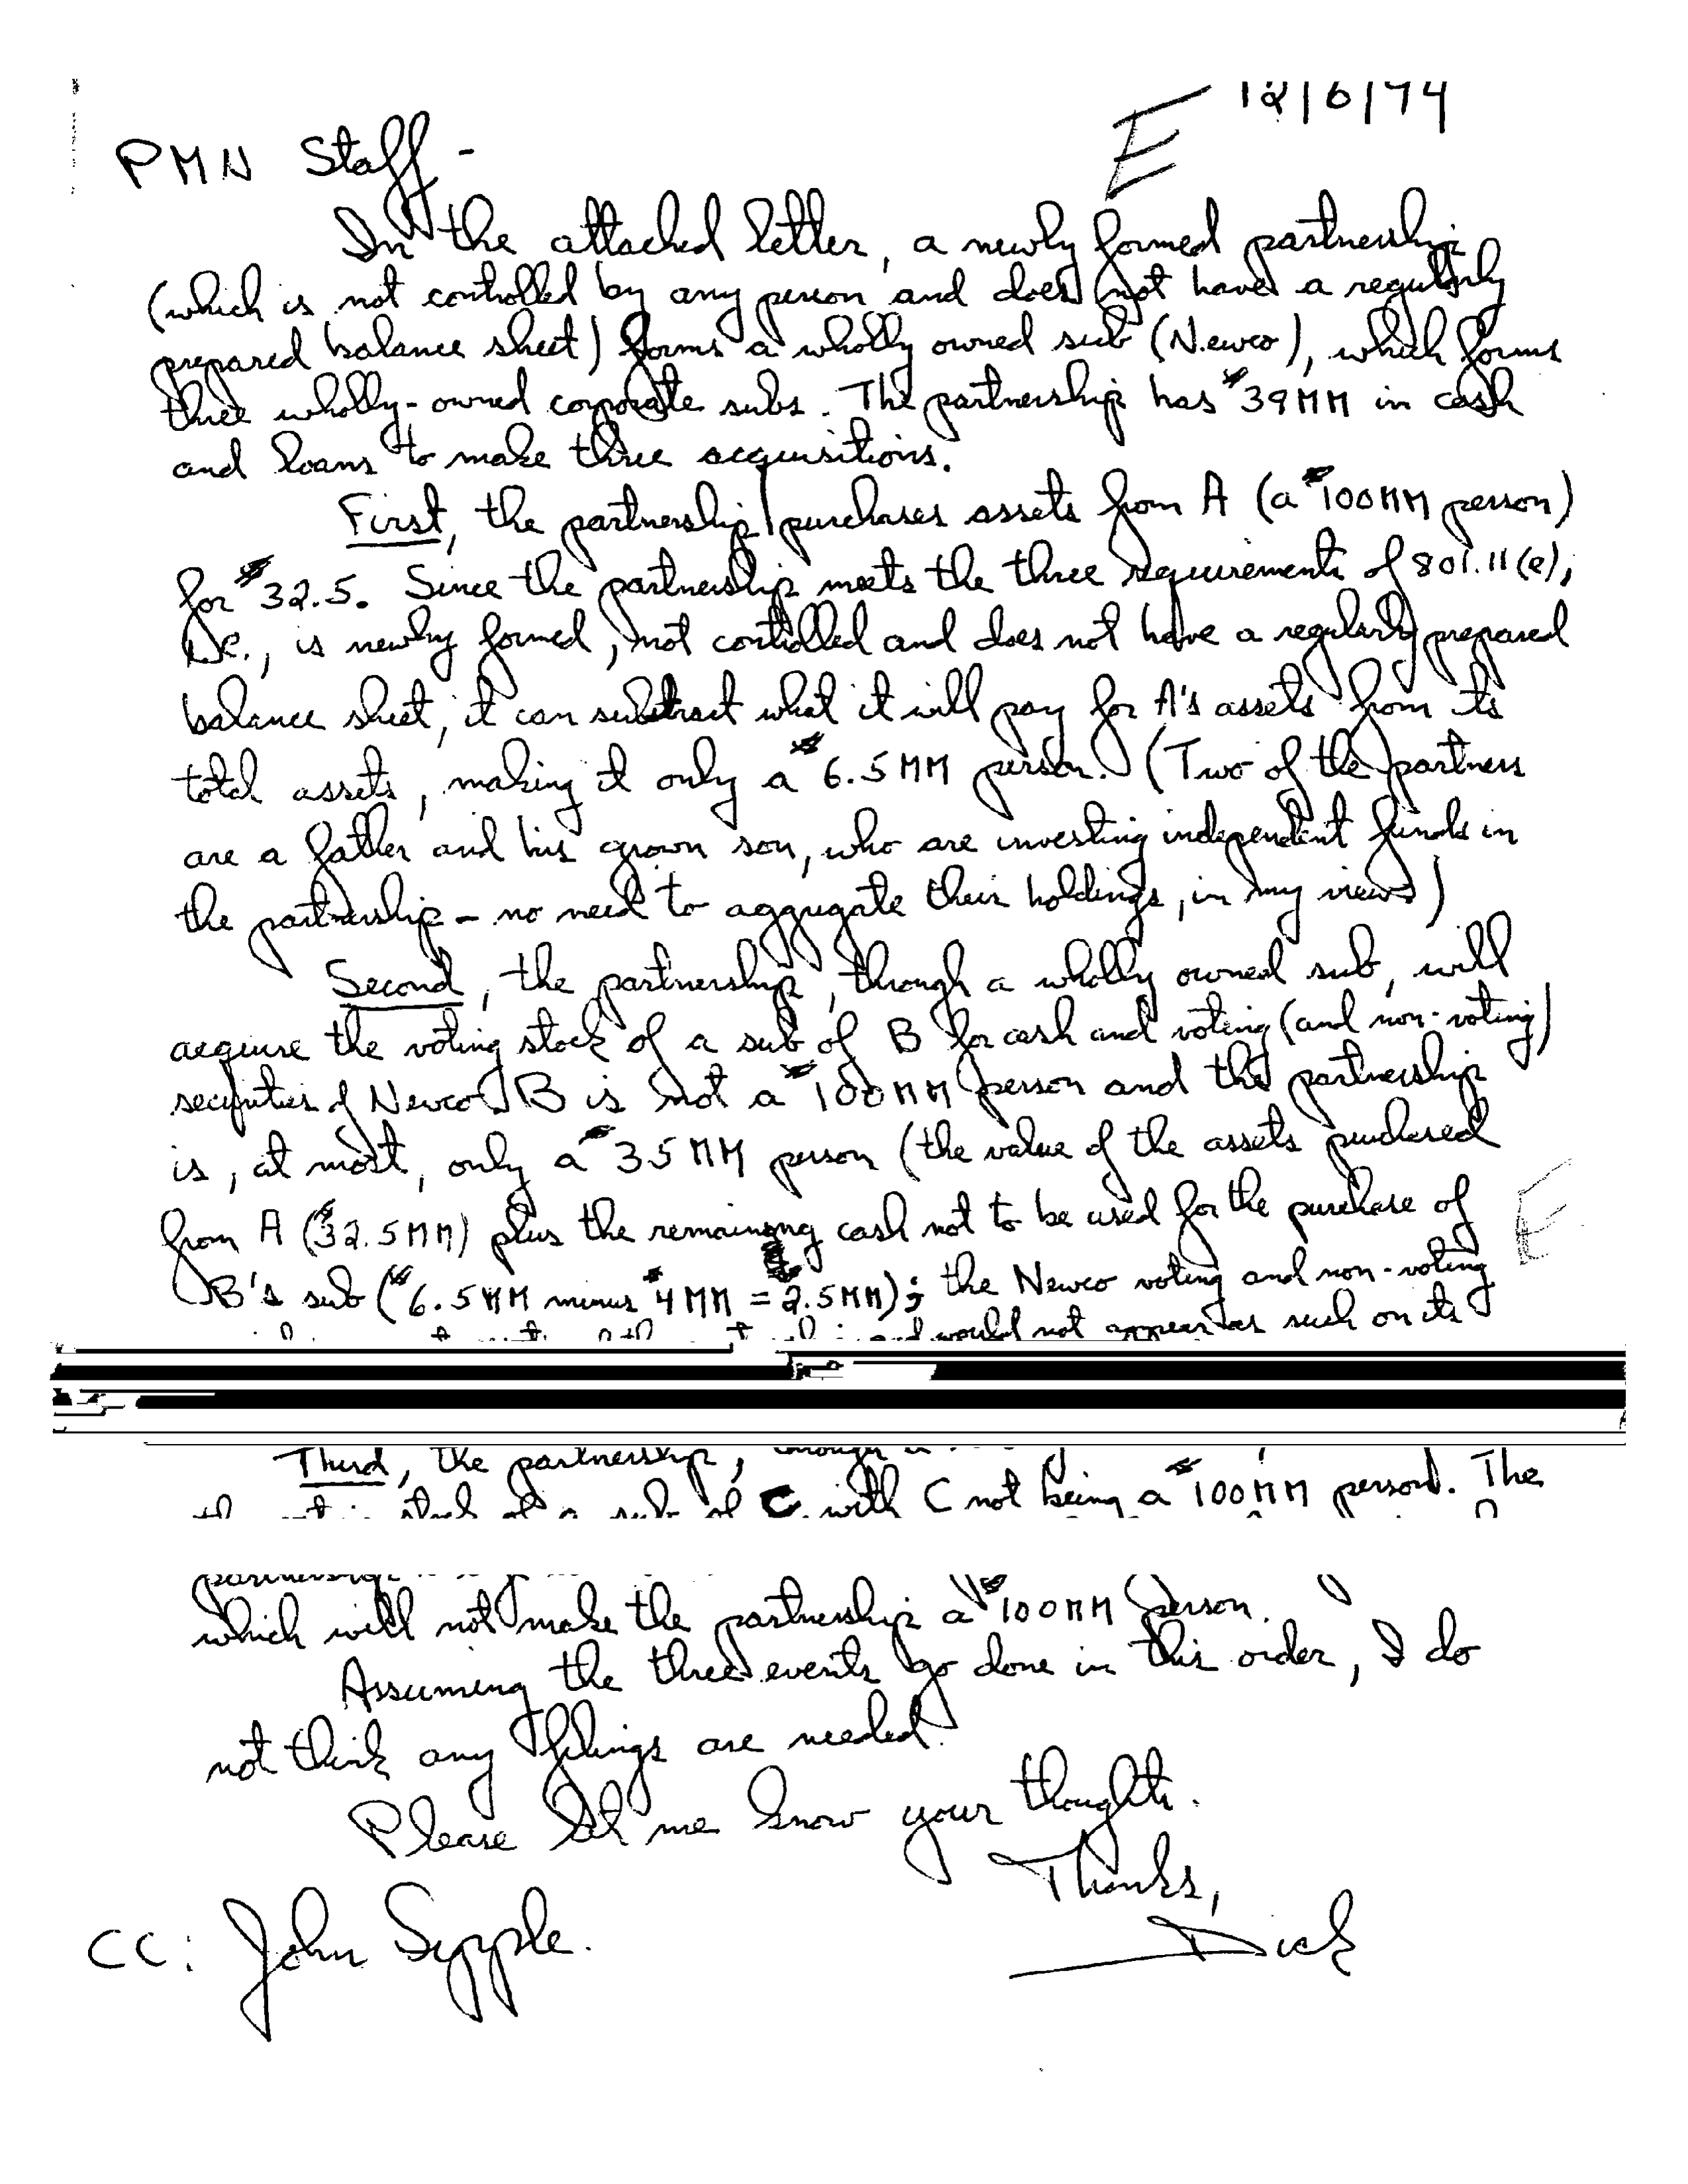 12/6/94
E
PMN Staff -
In the attached letter, a newly formed partnership
(which is not controlled by any person and does not have a regularly
prepared balance sheet) forms a wholly owned sub (Newco), which forms
three wholly-owned corporate subs. The partnership has $39MM in cash
and loans to make three acquisitions.
First, the partnership purchases assets from A (a $100MM person)
for $32.5. Since the partnership meets the three requirements of 801.11(e),
i.e., is newly formed, not controlled and does not have a regularly prepared
balance sheet, it can subtract what it will pay for A's assets from its
total assets, making it only a $6.5MM person. (Two of the partners
are a father and his grown son, who are investing independent funds in
the partnership - no need to aggregate their holdings, in my view)
Second, the partnership, through a wholly owned sub, will
acquire the voting stock of a sub of B for cash and voting (and non-voting)
securities of Newco. B is not a $100MM person and the partnership
is, at most, only a $35MM person (the value of the assets purchased
from A ($32.5MM) plus the remaining cash not to be used for the purchase of
B's sub ($6.5MM minus $4MM = 2.5MM); the Newco voting and non-voting
E
and would not appear as such on its
Third, the partnership, through a
stock of a sub of C with C not being a $100MM person. The
partnership
which will not make the partnership a $100MM person.
Assuming the three events go done in this order, I do
not think any filings are needed.
Please let me know your thoughts.
Thanks,
Dick
CC: John Sipple.